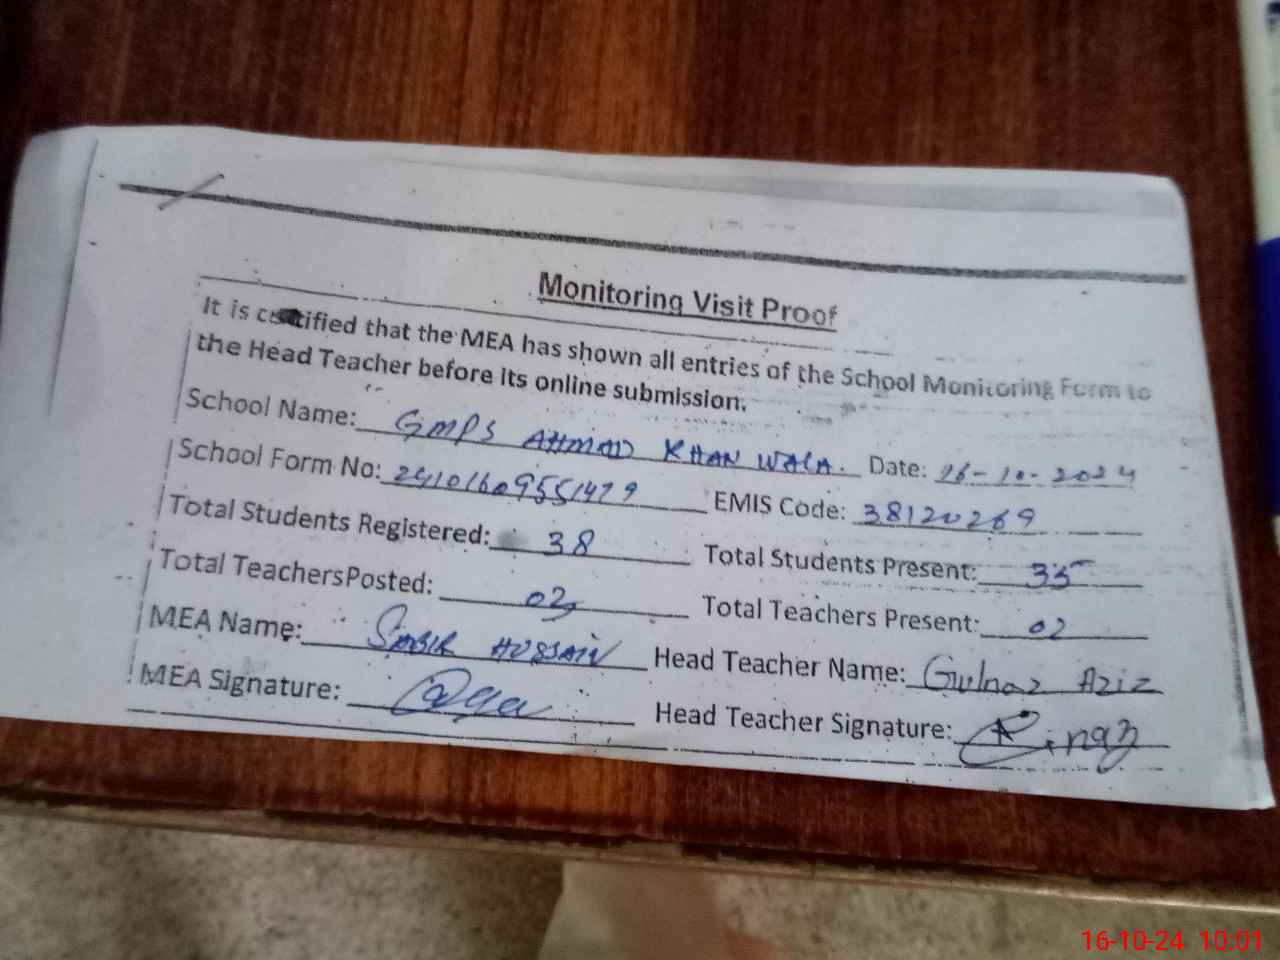 Monitoring Visit Proof
It is certified that the MEA has shown all entries of the School Monitoring Form to
the Head Teacher before its online submission.
School Name: GMPS AHMAD KHAN WALA. Date: 16-10-2024
School Form No: 24101609551479 EMIS Code: 38120269
Total Students Registered: 38 Total Students Present: 35
Total TeachersPosted: 02 Total Teachers Present: 02
MEA Name: SABIR HUSSAIN Head Teacher Name: Gulnaz Aziz
MEA Signature: Head Teacher Signature:
16-10-24 10:01